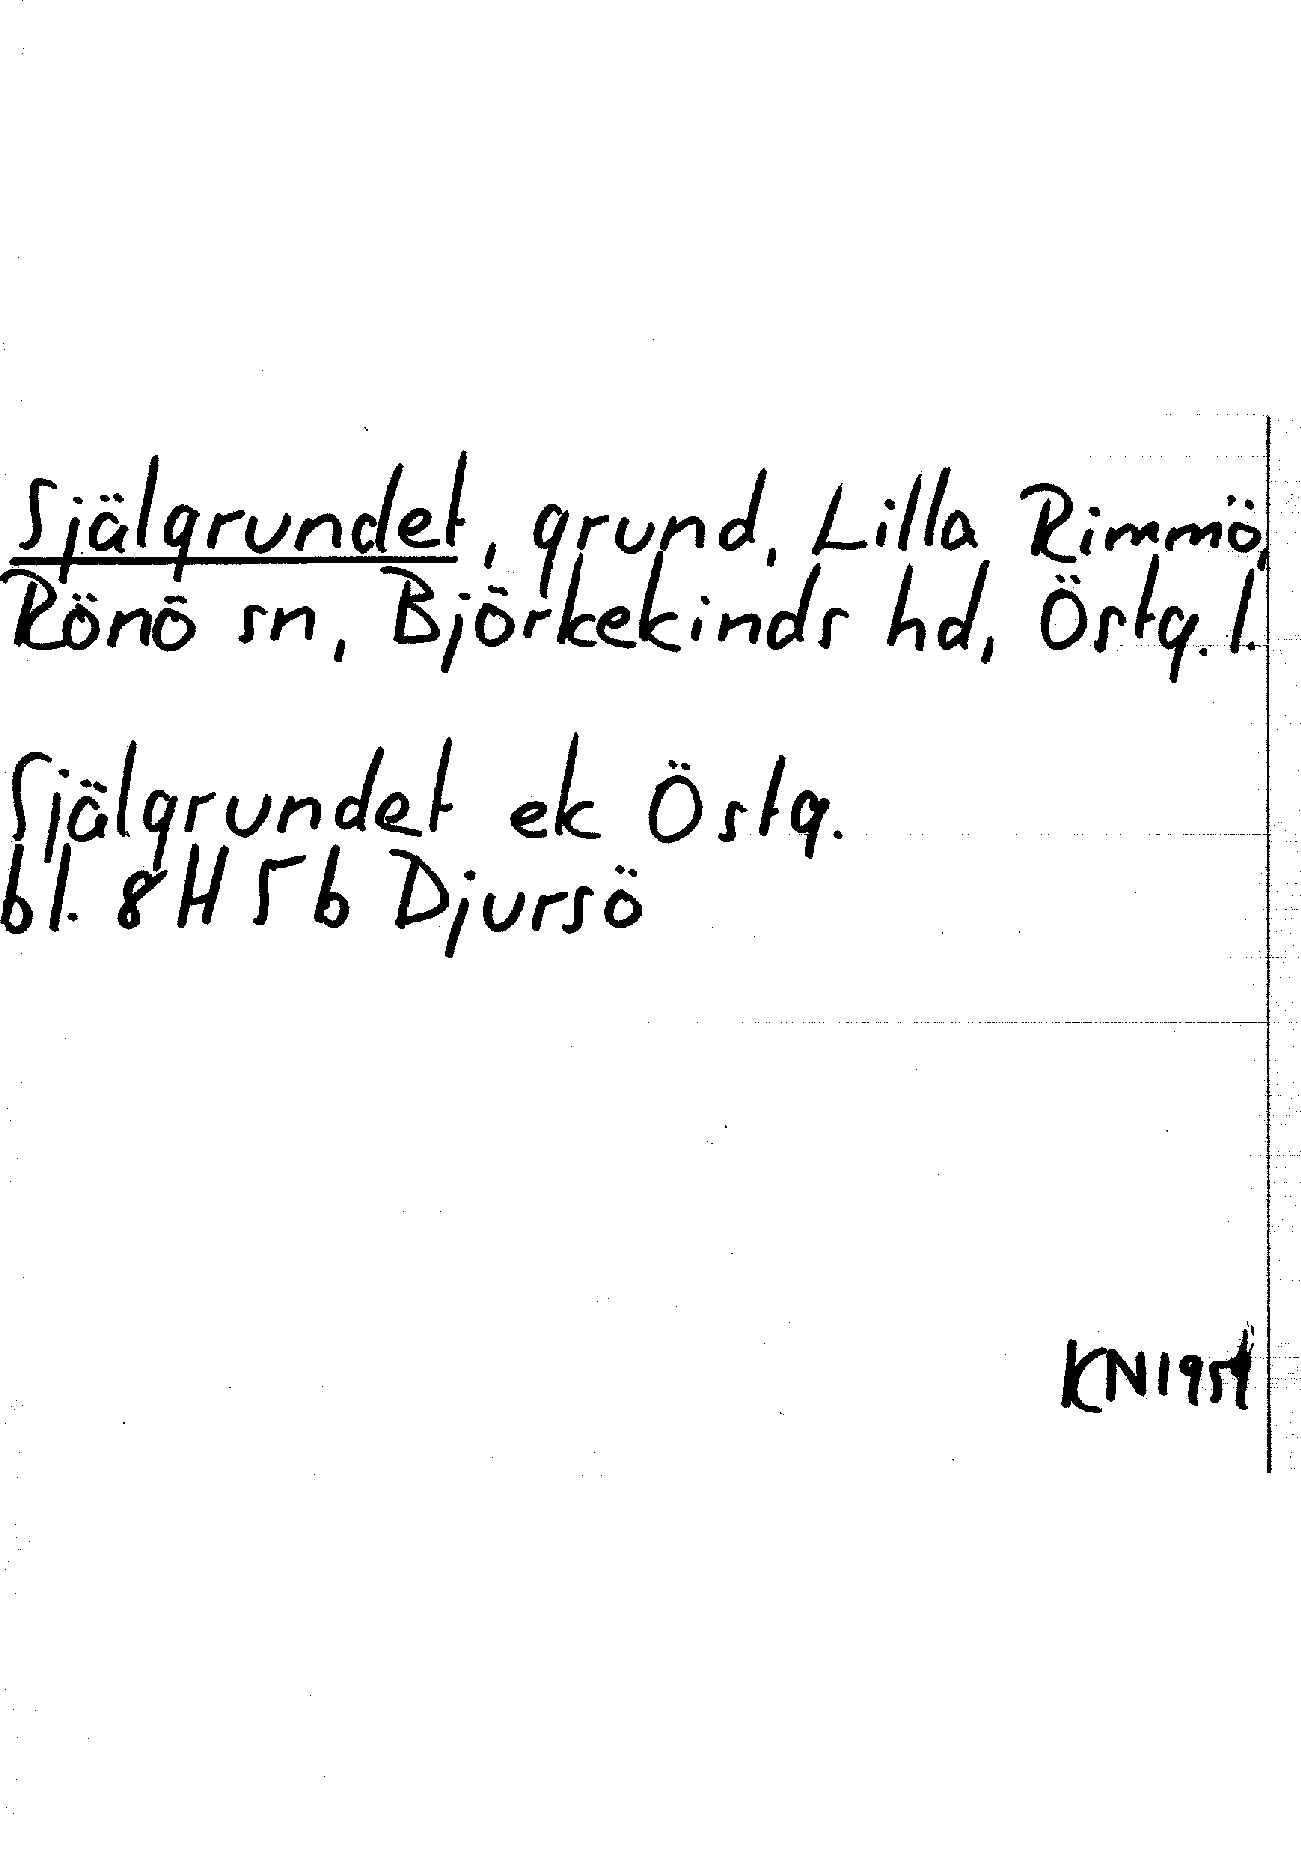 Själgrundet, grund, Lilla Rimmö,
Rönö sn, Björkekinds hd, Östg. l.
Själgrundet ek Östg.
bl. 8H 5b Djursö